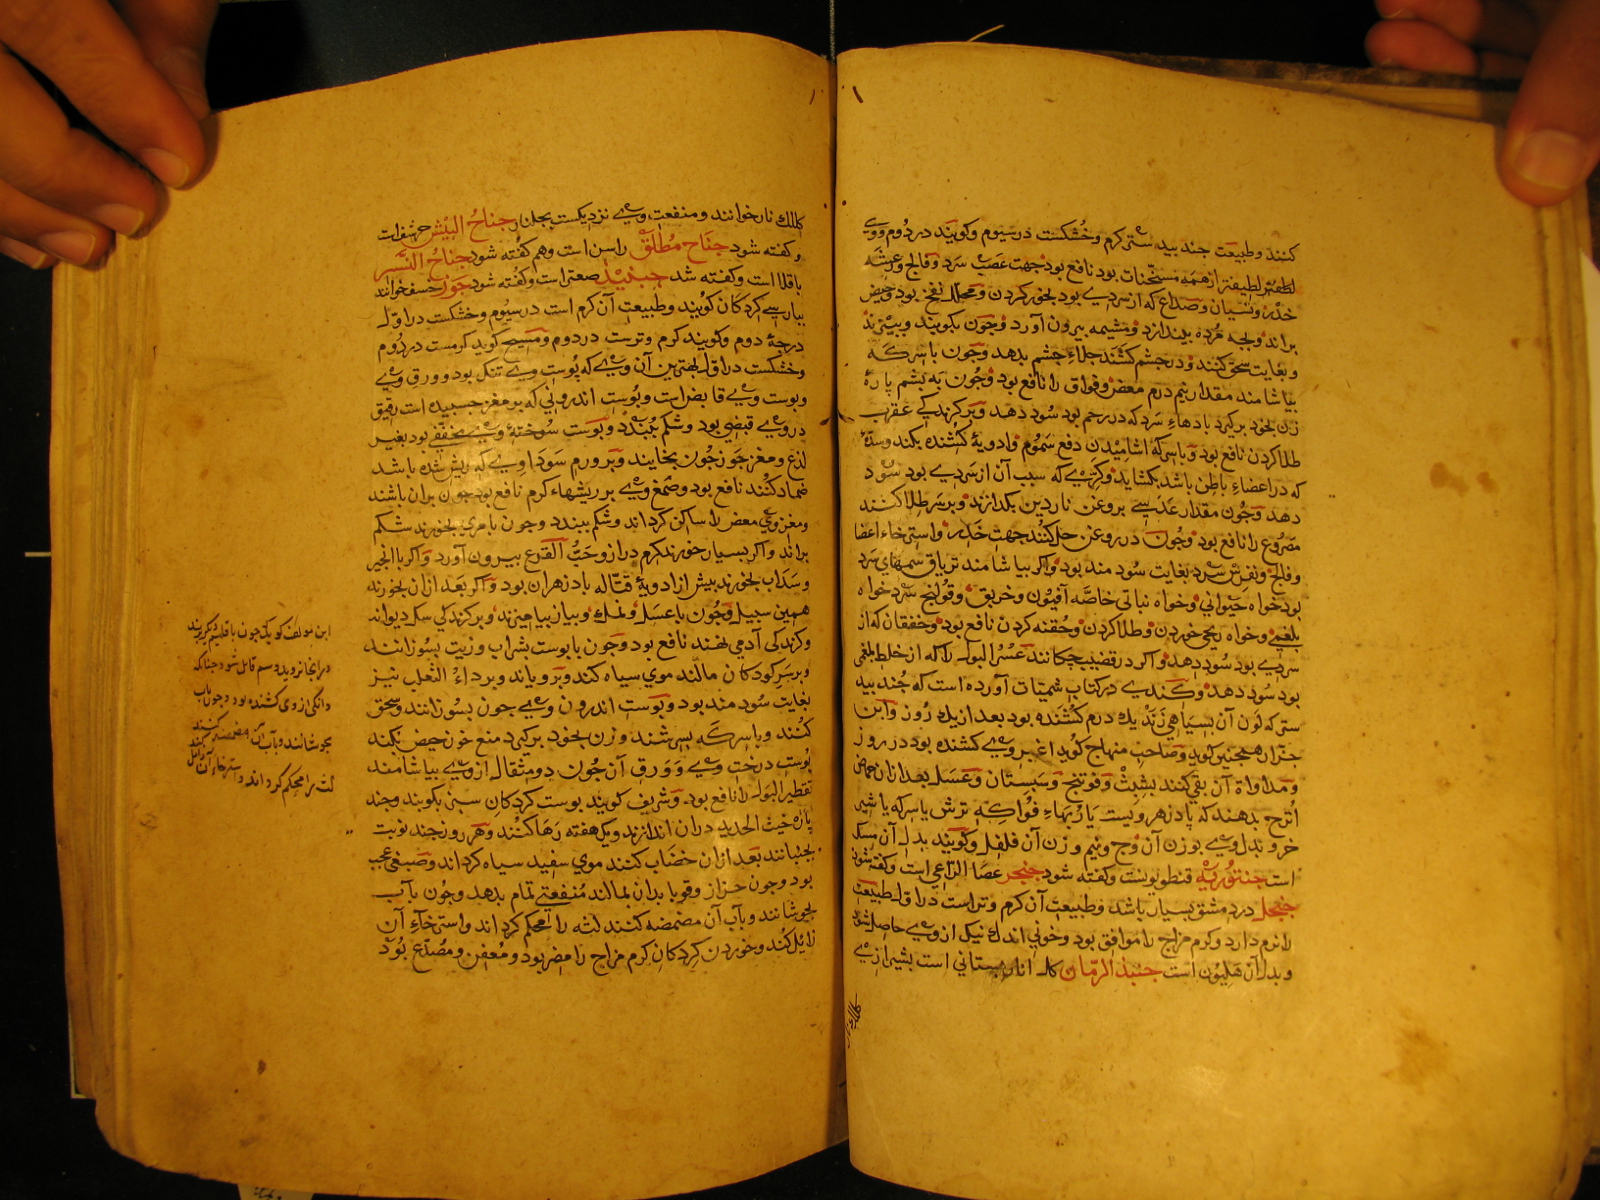 کنند و طبیعت جند بیدستر کرم و خشکست در سیوم و کویند در دوم و وی
لطیفتر از همه مسخنات بود نافع بود جهت عصب سرد و فالج و رعشه
خدر و نسیان و صداع که از سردی بود بخور کردن و محلل نفخ بود و حیض
براند و بچه مرده بیندازد و مشیمه بیرون آورد و جون بکوبند و ببیزند
و بغایت سحق کنند و در جشم کشند جلاء جشم بدهد و جون با سرکه
بیاشامند مقدار نیم درم مغص و فواق را نافع بود و جون به پشم پاره
زن بخود برکیرد بادهاء سرد که در رحم بود سود دهد و بر کزندکی عقرب
طلا کردن نافع بود و با سرکه اشامیدن دفع سموم و ادویهٔ کشنده بکند و سدهٔ
که در اعضاء باطن باشد بکشاید و کری که سبب آن از سردی بود سود
دهد و جون مقدار عدسی بروغن ناردین بکدازند و بر سر طلا کنند
مصروع را نافع بود و جون در روغن حل کنند جهت خدر و استرخاء اعضا
و فالج و نقرس سرد بغایت سودمند بود و اکر بیاشامند تریاق سمهای سرد
بود خواه حیوانی و خواه نباتی خاصه افیون و خربق و قولنج سرد خواه
بلغمی و خواه ریحی خوردن و طلا کردن و حقنه کردن نافع بود و خفقان که از
سردی بود سود دهد و اکر در قضیب جکانند عسر البول را که از خلط بلغمی
بود سود دهد و کندی در کتاب سمیات آورده است که جند بید
ستر که لون آن بسیاهی زند یک درم کشنده بود بعد از یک روز و ابن
جزار همجنین کوید و صاحب منهاج کوید اغبر وی کشنده بود در روز
و مداواة آن بقی کنند بشبث و فوتنج و سبستان و عسل بعد از ان حماض
اترج بدهند که پادزهر ویست یا ربهاء فواکه ترش یا سرکه یا شیر
خر و بدل وی بوزن آن وج و نیم وزن آن فلفل و کویند بدل آن مسک
است جنتوریه قنطوریونست و کفته شود جنجر عصا الراعی است و کفته شود
جنجل در دمشق بسیار باشد و طبیعت آن کرم و تر است در اول طبیعت
را نرم دارد و کرم مزاج را موافق بود و خونی اندک نیک از وی حاصل شود
و بدل آن هلیون است جنبذ الرمان کل انار بستانی است بشیرازی
کلک نار خوانند و منفعت وی نزدیکست بجلنار جناح البیش حرشف است
و کفته شود جناح مطلق راسن است و هم کفته شود جناح النسر
باقلا است و کفته شد صعتر است و کفته شود جوز خسف خوانند
بپارسی کردکان کویند و طبیعت آن کرم است در سیوم و خشکست در اول
درجهٔ دوم و کویند کرم و ترست در دوم و مسیح کوید کرمست در دوم
و خشکست در اول بهترین آن وی که پوست وی تنک بود و ورق وی
و پوست وی قابض است و پوست اندرونی که بر مغز جسبیده است رقیق
در وی قبضی بود و شکم ببندد و پوست سوختهٔ وی مجفف بود بغیر
لذع و مغز جوز جون بخایند و بر ورم سوداوی که ریش شده باشد
ضماد کنند نافع بود و صمغ وی بر ریشهاء کرم نافع بود جون بران باشند
و مغز وی مغص را ساکن کرداند و شکم ببندد و جون با مری بخورند شکم
براند و اکر بسیار خورند کرم دراز و حب القرع بیرون آورد و اکر با انجیر
و سداب بخورند بیش از ادویهٔ قتاله پادزهر ان بود و اکر بعد از ان بخورند
همین سبیل و جون با عسل و نمک و بیاز بیامیزند و بر کزندکی سک دیوانه
و کزندکی آدمی نهند نافع بود و جون با پوست بشراب و زیت بسوزانند
و بر سر کودکان مالند موی سیاه کند و برویاند و بر داء الثعلب نیز
بغایت سودمند بود و پوست اندرون وی جون بسوزانند و سحق
کنند و با سرکه بسرشند و زن بخود برکیرد منع خون حیض بکند
پوست درخت وی و ورق آن جون دو مثقال از وی بیاشامند
تقطیر البول را نافع بود و شریف کویند پوست کردکان سبز بکوبند و جند
پاره خبث الحدید در ان اندازند و یک هفته رها کنند و هر روز جند نوبت
بجنبانند بعد از ان خضاب کنند موی سفید سیاه کرداند و صبغی عجب
بود و جون حزاز و قوبا بدان بمالند منفعتی تمام بدهد و جون بآب
بجوشانند و بآب آن مضمضه کنند لثه را محکم کرداند و استرخاء آن
زایل کند و خوردن کردکان کرم مزاج را مضر بود و معفن و مصدع بود
ابن مولف کوید جون باقلیم
دانکی از وی کشنده بود و جون بآب
بجوشانند و بآب آن مضمضه کنند
لثه را محکم کرداند و استرخاء آن زایل